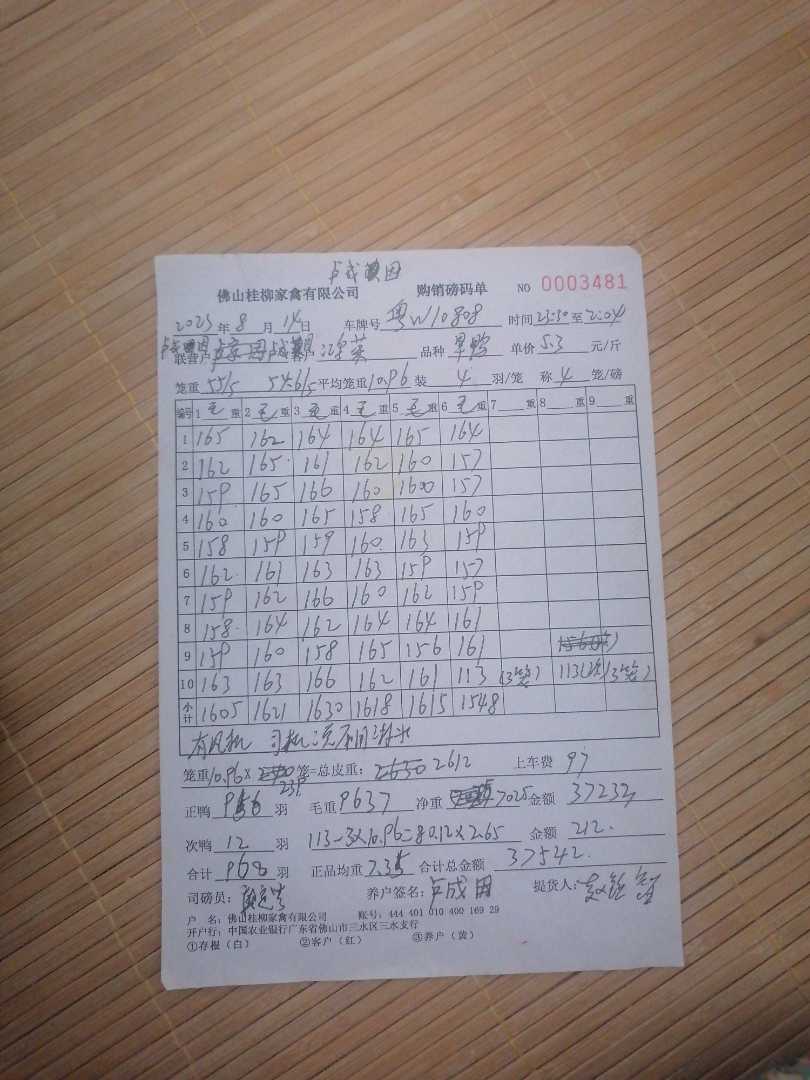 卢成田
佛山桂柳家禽有限公司 购销磅码单 NO 0003481
2023年8月14日 车牌号 粤W10808 时间23:30至2:04
联营户 品种 旱鸭 单价5.3元/斤
笼重55/5 54.6/5 平均笼重10.96 装4羽/笼 称4笼/磅
编号 1毛重 2毛重 3毛重 4毛重 5毛重 6毛重 7重 8重 9重
1 165 162 164 164 165 164
2 162 165 161 162 160 157
3 159 165 166 160 160 157
4 160 160 165 158 165 160
5 158 159 159 160 163 159
6 162 161 163 163 159 157
7 159 162 166 160 162 159
8 158 164 162 164 164 161
9 159 160 158 165 156 161
10 163 163 166 162 161 113 (3笼) 113(次)(3笼)
小计 1605 1621 1630 1618 1615 1548
有风机 司机洗不用淋水
笼重10.96×239笼=总皮重:2612 上车费 97
正鸭956羽 毛重9637 净重7025 金额37232
次鸭12羽 113-3×10.96=80.12×2.65 金额212.
合计968羽 正品均重7.35 合计总金额37542.
司磅员: 养户签名:卢成田 提货人:
户 名:佛山桂柳家禽有限公司 账号:444 401 010 400 169 29
开户行:中国农业银行广东省佛山市三水区三水支行
①存根(白) ②客户(红) ③养户(黄)